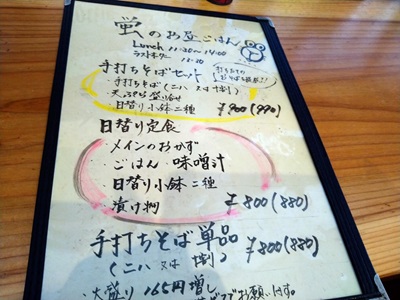 蛍のお昼ごはん
Lunch 11:30~14:00
ラストオーダー 13:30
手打ちそばセット
・手打ちそば(二八 又は 十割)
・天ぷら盛り合せ
・日替り小鉢二種 ¥900(990)
日替り定食
・メインのおかず
・ごはん・味噌汁
・日替り小鉢二種
・漬け物 ¥800(880)
手打ちそば単品 ¥800(880)
(二八 又は 十割)
大盛り 165円増し
お願います。